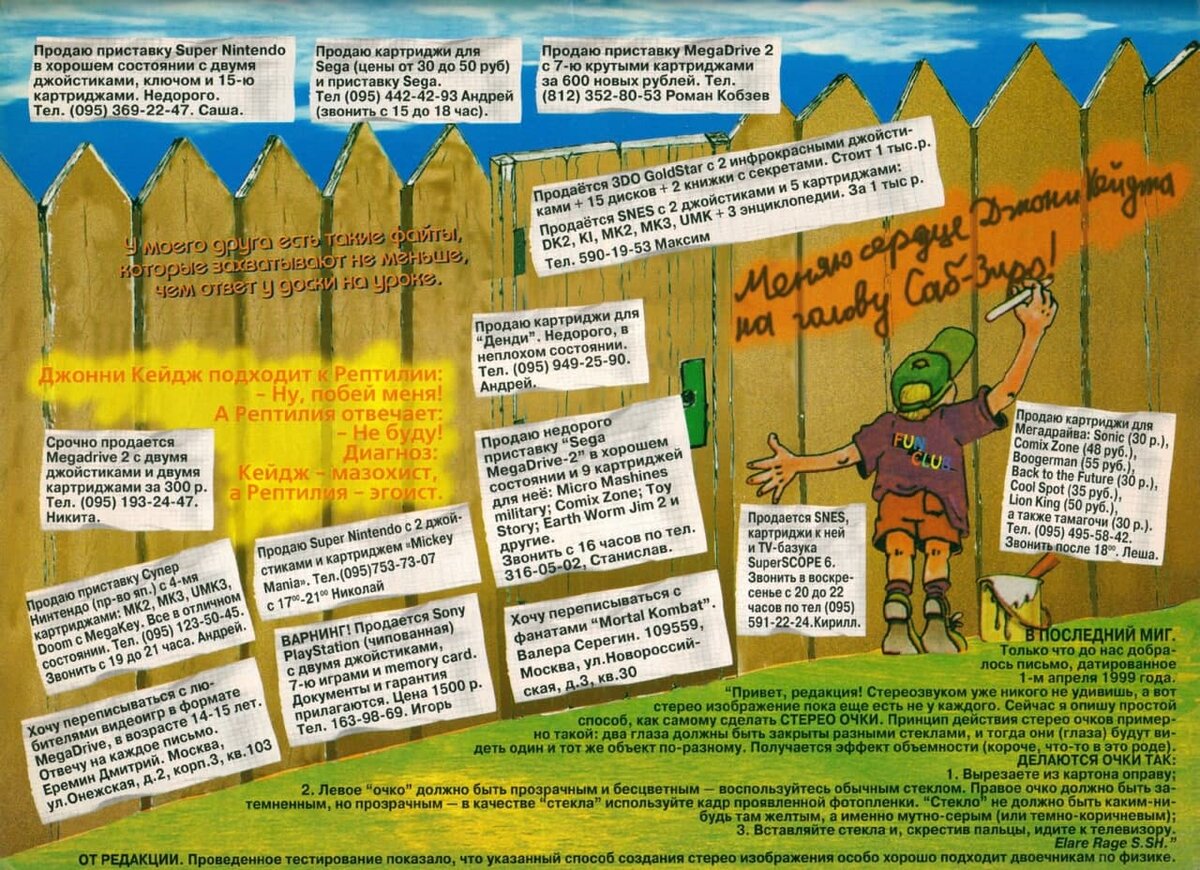 Продаю приставку Super Nintendo
в хорошем состоянии с двумя
джойстиками, ключом и 15-ю
картриджами. Недорого.
Тел. (095) 369-22-47. Саша.
Продаю картриджи для
Sega (цены от 30 до 50 руб)
и приставку Sega.
Тел (095) 442-42-93 Андрей
(звонить с 15 до 18 час).
Продаю приставку MegaDrive 2
с 7-ю крутыми картриджами
за 600 новых рублей. Тел.
(812) 352-80-53 Роман Кобзев
Продаётся 3DO GoldStar с 2 инфрокрасными джойсти-
ками + 15 дисков + 2 книжки с секретами. Стоит 1 тыс.р.
Продаётся SNES с 2 джойстиками и 5 картриджами:
DK2, KI, MK2, MK3, UMK + 3 энциклопедии. За 1 тыс р.
Тел. 590-19-53 Максим
Меняю сердце Джони Кейджа
на голову Саб-Зиро!
У моего друга есть такие файты,
которые захватывают не меньше,
чем ответ у доски на уроке.
Продаю картриджи для
"Денди". Недорого, в
неплохом состоянии.
Тел. (095) 949-25-90.
Андрей.
Джонни Кейдж подходит к Рептилии:
– Ну, побей меня!
А Рептилия отвечает:
– Не буду!
Диагноз:
Кейдж – мазохист,
а Рептилия – эгоист.
Срочно продается
Megadrive 2 с двумя
джойстиками и двумя
картриджами за 300 р.
Тел. (095) 193-24-47.
Никита.
Продаю недорого
приставку "Sega
MegaDrive-2" в хорошем
состоянии и 9 картриджей
для неё: Micro Mashines
military; Comix Zone; Toy
Story; Earth Worm Jim 2 и
другие.
Звонить с 16 часов по тел.
316-05-02, Станислав.
FUN
CLUB
Продаю картриджи для
Мегадрайва: Sonic (30 р.),
Comix Zone (48 руб.),
Boogerman (55 руб.),
Back to the Future (30 р.),
Cool Spot (35 руб.),
Lion King (50 руб.),
а также тамагочи (30 р.).
Тел. (095) 495-58-42.
Звонить после 18⁰⁰. Леша.
Продается SNES,
картриджи к ней
и TV-базука
SuperSCOPE 6.
Звонить в воскре-
сенье с 20 до 22
часов по тел (095)
591-22-24.Кирилл.
Продаю Super Nintendo с 2 джой-
стиками и картриджем «Mickey
Mania». Тел.(095)753-73-07
с 17⁰⁰-21⁰⁰ Николай
Продаю приставку Супер
Нинтендо (пр-во яп.) с 4-мя
картриджами: MK2, MK3, UMK3,
Doom с MegaKey. Все в отличном
состоянии. Тел. (095) 123-50-45.
Звонить с 19 до 21 часа. Андрей.
ВАРНИНГ! Продается Sony
PlayStation (чипованная)
с двумя джойстиками,
7-ю играми и memory card.
Документы и гарантия
прилагаются. Цена 1500 р.
Тел. 163-98-69. Игорь
Хочу переписываться с
фанатами "Mortal Kombat".
Валера Серегин. 109559,
Москва, ул.Новороссий-
ская, д.3, кв.30
Хочу переписываться с лю-
бителями видеоигр в формате
MegaDrive, в возрасте 14-15 лет.
Отвечу на каждое письмо.
Еремин Дмитрий. Москва,
ул.Онежская, д.2, корп.3, кв.103
В ПОСЛЕДНИЙ МИГ.
Только что до нас добра-
лось письмо, датированное
1-м апреля 1999 года.
"Привет, редакция! Стереозвуком уже никого не удивишь, а вот
стерео изображение пока еще есть не у каждого. Сейчас я опишу простой
способ, как самому сделать СТЕРЕО ОЧКИ. Принцип действия стерео очков пример-
но такой: два глаза должны быть закрыты разными стеклами, и тогда они (глаза) будут ви-
деть один и тот же объект по-разному. Получается эффект объемности (короче, что-то в это роде).
ДЕЛАЮТСЯ ОЧКИ ТАК:
1. Вырезаете из картона оправу;
2. Левое "очко" должно быть прозрачным и бесцветным — воспользуйтесь обычным стеклом. Правое очко должно быть за-
темненным, но прозрачным — в качестве "стекла" используйте кадр проявленной фотопленки. "Стекло" не должно быть каким-ни-
будь там желтым, а именно мутно-серым (или темно-коричневым);
3. Вставляйте стекла и, скрестив пальцы, идите к телевизору.
Elare Rage S.SH."
ОТ РЕДАКЦИИ. Проведенное тестирование показало, что указанный способ создания стерео изображения особо хорошо подходит двоечникам по физике.